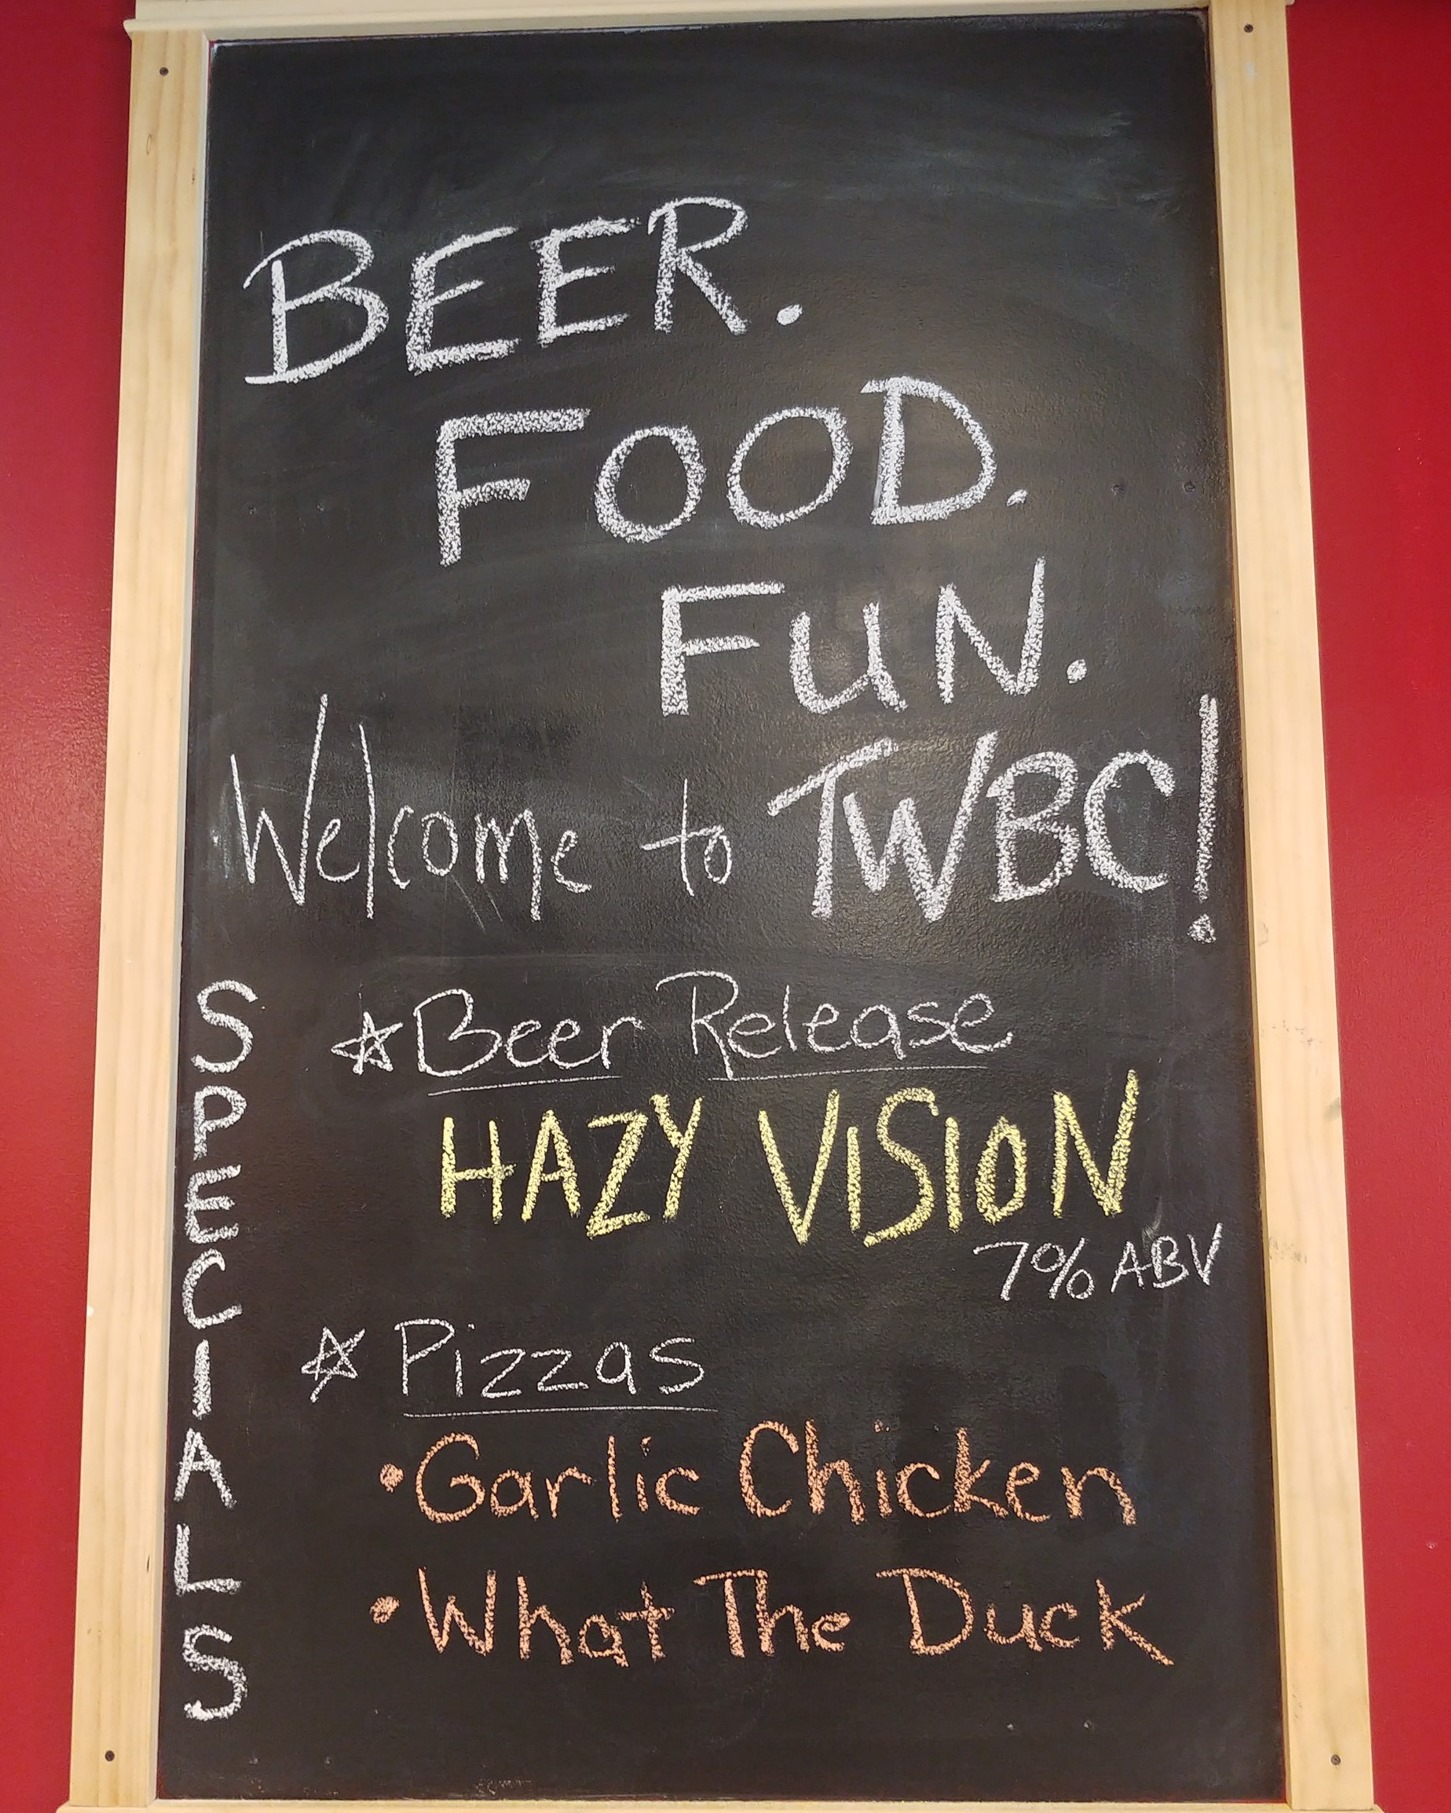 BEER.
FOOD.
FUN.
Welcome to TWBC!
SPECIALS
☆ Beer Release
HAZY VISION
7% ABV
☆ Pizzas
• Garlic Chicken
• What The Duck